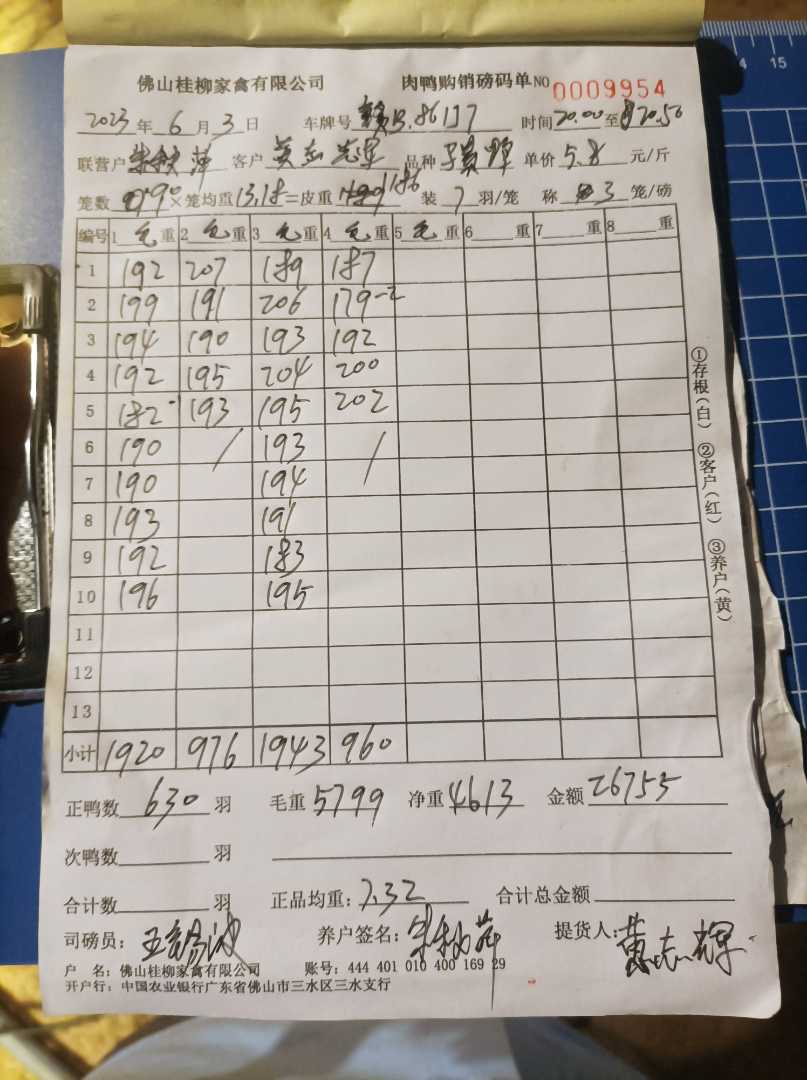 佛山桂柳家禽有限公司 肉鸭购销磅码单 NO 0009954
2023年6月3日 车牌号 时间20.00至20.50
联营户 客户 品种 单价5.8元/斤
笼数90×笼均重13.18=皮重1186 装7羽/笼 称3笼/磅
编号 1毛重 2毛重 3毛重 4毛重 5毛重 6重 7重 8重
1 192 207 189 187
2 199 191 206 179-2
3 194 190 193 192
4 192 195 204 200
5 182 193 195 202
6 190 / 193 /
7 190 194
8 193 191
9 192 183
10 196 195
11
12
13
小计 1920 976 1943 960
正鸭数630羽 毛重5799 净重4613 金额26755
次鸭数 羽
合计数 羽 正品均重:7.32 合计总金额
司磅员: 养户签名: 提货人:黄志辉
户 名:佛山桂柳家禽有限公司 账号:444 401 010 400 169 29
开户行:中国农业银行广东省佛山市三水区三水支行
①存根(白) ②客户(红) ③养户(黄)
4 15